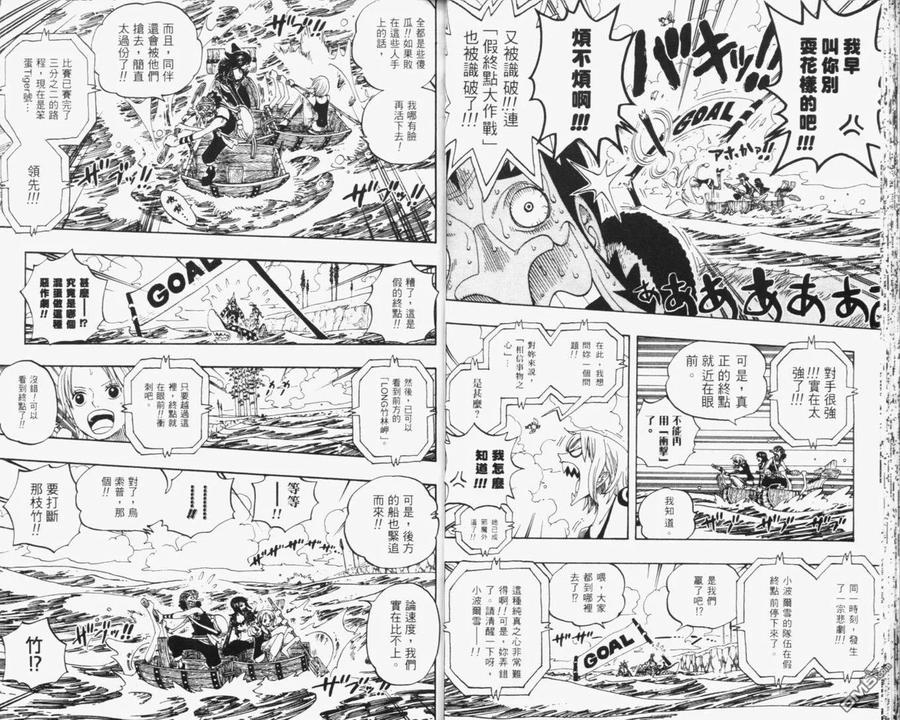 我早
叫你別
耍花樣
的吧!!!
バキッ!!
GOAL
アホかァッ!!
煩不煩啊!!!
又被識破!!!連
「假終點大作戰」
也被識破了!!!
ああああああ
對手很強
!!!實在太
強了!!!
可是,真
正的終點
就近在眼
前。
不能再
用「衝擊」
了。
我知道。
在此,我想
問妳一個問
題!!
對妳來說
「相信事物之
心」…
是甚麼?
我怎麼
知道!!!
她已成
邪魔外
道了!!
同一時刻,發生
了一宗悲劇!!!
小波爾雪的隊伍在假
終點前停下來了。
是我們
贏了吧!?
喂,大家
都到哪裡
去了!?
GOAL
這種純真之心非常難
得啊!!可是,妳弄錯
了。請清醒一下呀,
小波爾雪!!
全都是些傻
瓜!!如果敗
在這些人手
上的話,
我哪有臉
再活下去!
而且,同伴
還會被他們
搶去,簡直
太過份了!!
比賽已賽完了
三分之二的路
程,現在是笨
蛋Tiger號…
領先!!!
糟了,這是
假的終點!!
GOAL
甚麼——!?
究竟是哪個
混蛋做這種
惡作劇!!
然後,已可以
看到前方的
「LONG竹林岬」。
只要越過這
裡,終點就
在眼前!!衝
刺吧。
沒錯!可以
看到終點了!!
可是,後方
的船也緊追
而來!!
等等!
…………!!
對了,烏
索普,那
個!!
要打斷
那枝竹!!
ザザザザッ!!
論速度,我們
實在比不上。
竹!?